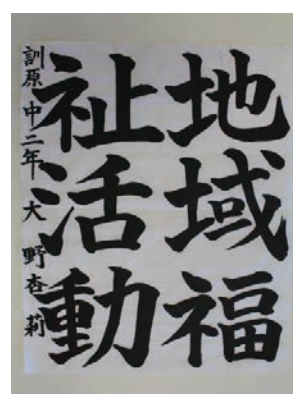 地域福
祉活動
訓原中二年 大野杏莉